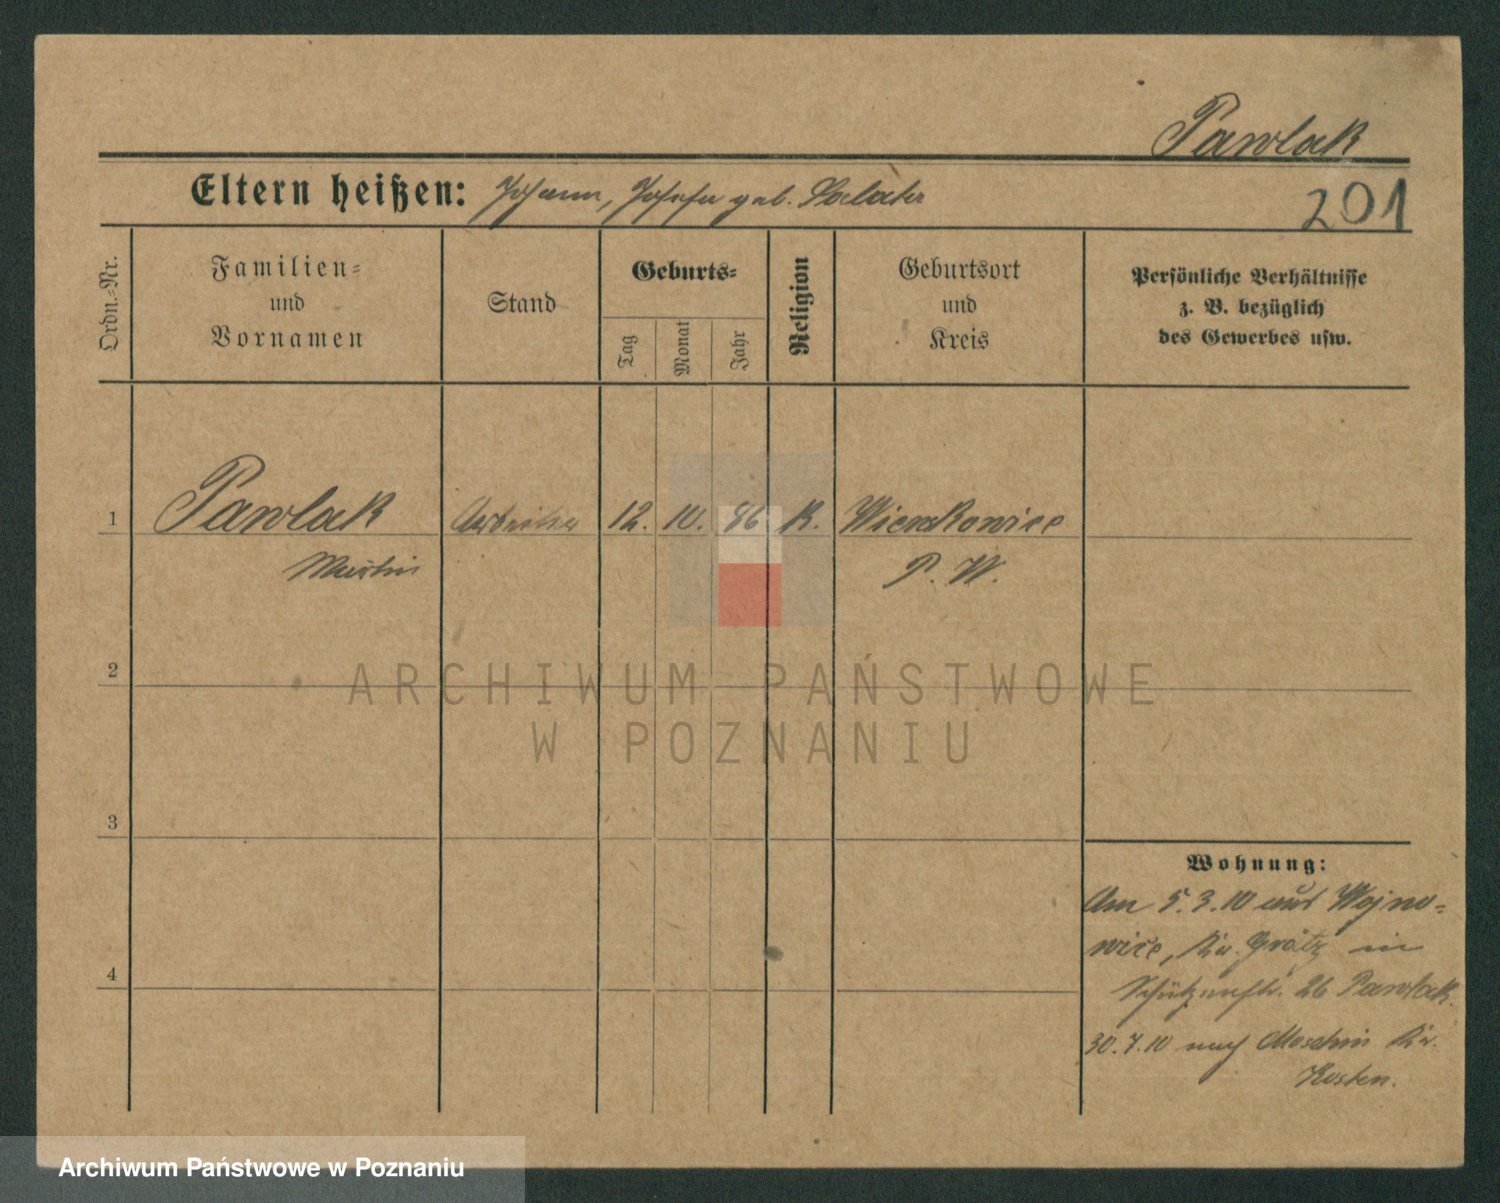 Pawlak
Eltern heißen: Johann, Josefa geb.
201
Ordn.-Nr.
Familien-
und
Vornamen
Stand
Geburts-
Tag
Monat
Jahr
Religion
Geburtsort
und
Kreis
Persönliche Verhältnisse
z. B. bezüglich
des Gewerbes usw.
1 Pawlak Arbeiter 12. 10. 86 K.
Martin P. W.
2
ARCHIWUM PAŃSTWOWE
W POZNANIU
3
Wohnung:
Am 5.3.10 aus Wojno-
wice, Kr. Grätz in
4
Schützenstr. 26 Pawlak.
30.7.10 nach Moschin Kr.
Kosten.
Archiwum Państwowe w Poznaniu